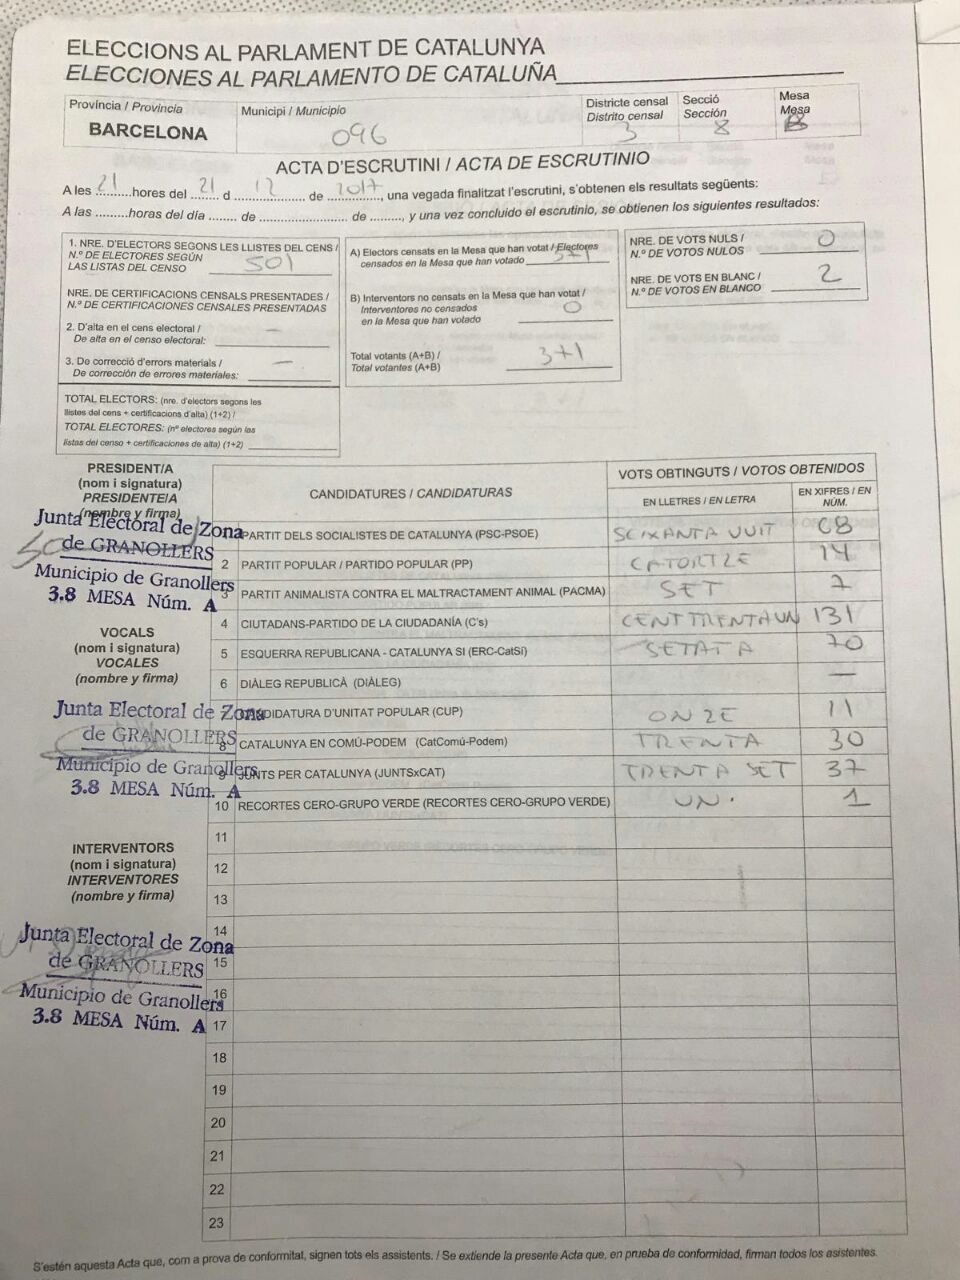 ELECCIONS AL PARLAMENT DE CATALUNYA
ELECCIONES AL PARLAMENTO DE CATALUÑA
Província / Provincia
BARCELONA
Municipi / Municipio
096
Districte censal
Distrito censal
3
Secció
Sección
8
Mesa
Mesa
ACTA D'ESCRUTINI / ACTA DE ESCRUTINIO
A les 21 hores del 21 d 12 de 2017, una vegada finalitzat l'escrutini, s'obtenen els resultats següents:
A las .........horas del día ....... de .................... de ........, y una vez concluido el escrutinio, se obtienen los siguientes resultados:
1. NRE. D'ELECTORS SEGONS LES LLISTES DEL CENS /
N.º DE ELECTORES SEGÚN
LAS LISTAS DEL CENSO
501
NRE. DE CERTIFICACIONS CENSALS PRESENTADES /
N.º DE CERTIFICACIONES CENSALES PRESENTADAS
2. D'alta en el cens electoral /
De alta en el censo electoral: —
3. De correcció d'errors materials /
De corrección de errores materiales: —
TOTAL ELECTORS: (nre. d'electors segons les
llistes del cens + certificacions d'alta) (1+2) /
TOTAL ELECTORES: (nº electores según las
listas del censo + certificaciones de alta) (1+2)
A) Electors censats en la Mesa que han votat / Electores
censados en la Mesa que han votado 371
B) Interventors no censats en la Mesa que han votat /
Interventores no censados
en la Mesa que han votado 0
Total votants (A+B) /
Total votantes (A+B) 371
NRE. DE VOTS NULS /
N.º DE VOTOS NULOS 0
NRE. DE VOTS EN BLANC /
N.º DE VOTOS EN BLANCO 2
PRESIDENT/A
(nom i signatura)
PRESIDENTE/A
(nombre y firma)
Junta Electoral de Zona
de GRANOLLERS
Municipio de Granollers
3.8 MESA Núm. A
VOCALS
(nom i signatura)
VOCALES
(nombre y firma)
Junta Electoral de Zona
de GRANOLLERS
Municipio de Granollers
3.8 MESA Núm. A
INTERVENTORS
(nom i signatura)
INTERVENTORES
(nombre y firma)
Junta Electoral de Zona
de GRANOLLERS
Municipio de Granollers
3.8 MESA Núm. A
CANDIDATURES / CANDIDATURAS
VOTS OBTINGUTS / VOTOS OBTENIDOS
EN LLETRES / EN LETRA
EN XIFRES / EN
NÚM.
PARTIT DELS SOCIALISTES DE CATALUNYA (PSC-PSOE) SEIXANTA VUIT 68
2 PARTIT POPULAR / PARTIDO POPULAR (PP) CATORTZE 14
3 PARTIT ANIMALISTA CONTRA EL MALTRACTAMENT ANIMAL (PACMA) SET 7
4 CIUTADANS-PARTIDO DE LA CIUDADANÍA (C's) CENT TRENTA UN 131
5 ESQUERRA REPUBLICANA - CATALUNYA SI (ERC-CatSí) SETATA 70
6 DIÀLEG REPUBLICÀ (DIÀLEG) —
7 CANDIDATURA D'UNITAT POPULAR (CUP) ONZE 11
8 CATALUNYA EN COMÚ-PODEM (CatComú-Podem) TRENTA 30
9 JUNTS PER CATALUNYA (JUNTSxCAT) TRENTA SET 37
10 RECORTES CERO-GRUPO VERDE (RECORTES CERO-GRUPO VERDE) UN. 1
11
12
13
14
15
16
17
18
19
20
21
22
23
S'estén aquesta Acta que, com a prova de conformitat, signen tots els assistents. / Se extiende la presente Acta que, en prueba de conformidad, firman todos los asistentes.